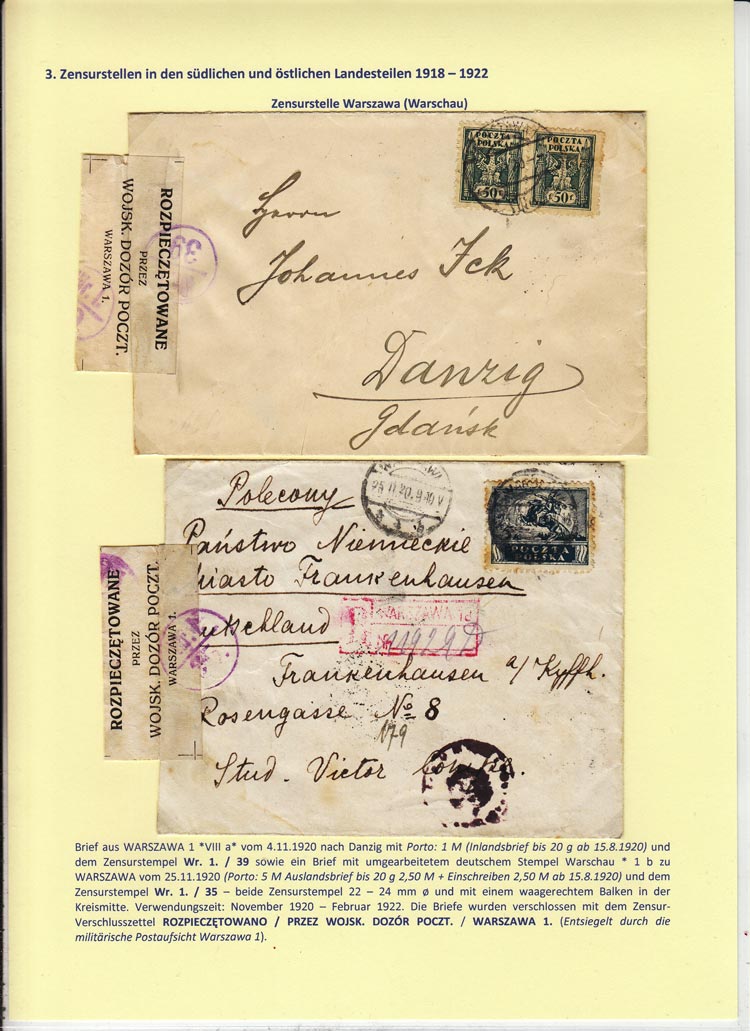 3. Zensurstellen in den südlichen und östlichen Landesteilen 1918 – 1922
Zensurstelle Warszawa (Warschau)
POCZTA
POLSKA
50
POCZTA
POLSKA
50
ROZPIECZĘTOWANE
PRZEZ
WOJSK. DOZÓR POCZT.
WARSZAWA 1.
39
Herrn
Johannes Ick
Danzig
Gdańsk
25.11.20.9-10V
Polecony
POCZTA
POLSKA
Państwo Niemieckie
Miasto Frankenhausen
ROZPIECZĘTOWANE
PRZEZ
WOJSK. DOZÓR POCZT.
WARSZAWA 1.
Deutschland
R
WARSZAWA
Frankenhausen a/ Kyffh.
Rosengasse No 8
179
Stud. Victor
Brief aus WARSZAWA 1 *VIII a* vom 4.11.1920 nach Danzig mit Porto: 1 M (Inlandsbrief bis 20 g ab 15.8.1920) und
dem Zensurstempel Wr. 1. / 39 sowie ein Brief mit umgearbeitetem deutschem Stempel Warschau * 1 b zu
WARSZAWA vom 25.11.1920 (Porto: 5 M Auslandsbrief bis 20 g 2,50 M + Einschreiben 2,50 M ab 15.8.1920) und dem
Zensurstempel Wr. 1. / 35 – beide Zensurstempel 22 – 24 mm ø und mit einem waagerechtem Balken in der
Kreismitte. Verwendungszeit: November 1920 – Februar 1922. Die Briefe wurden verschlossen mit dem Zensur-
Verschlusszettel ROZPIECZĘTOWANO / PRZEZ WOJSK. DOZÓR POCZT. / WARSZAWA 1. (Entsiegelt durch die
militärische Postaufsicht Warszawa 1).